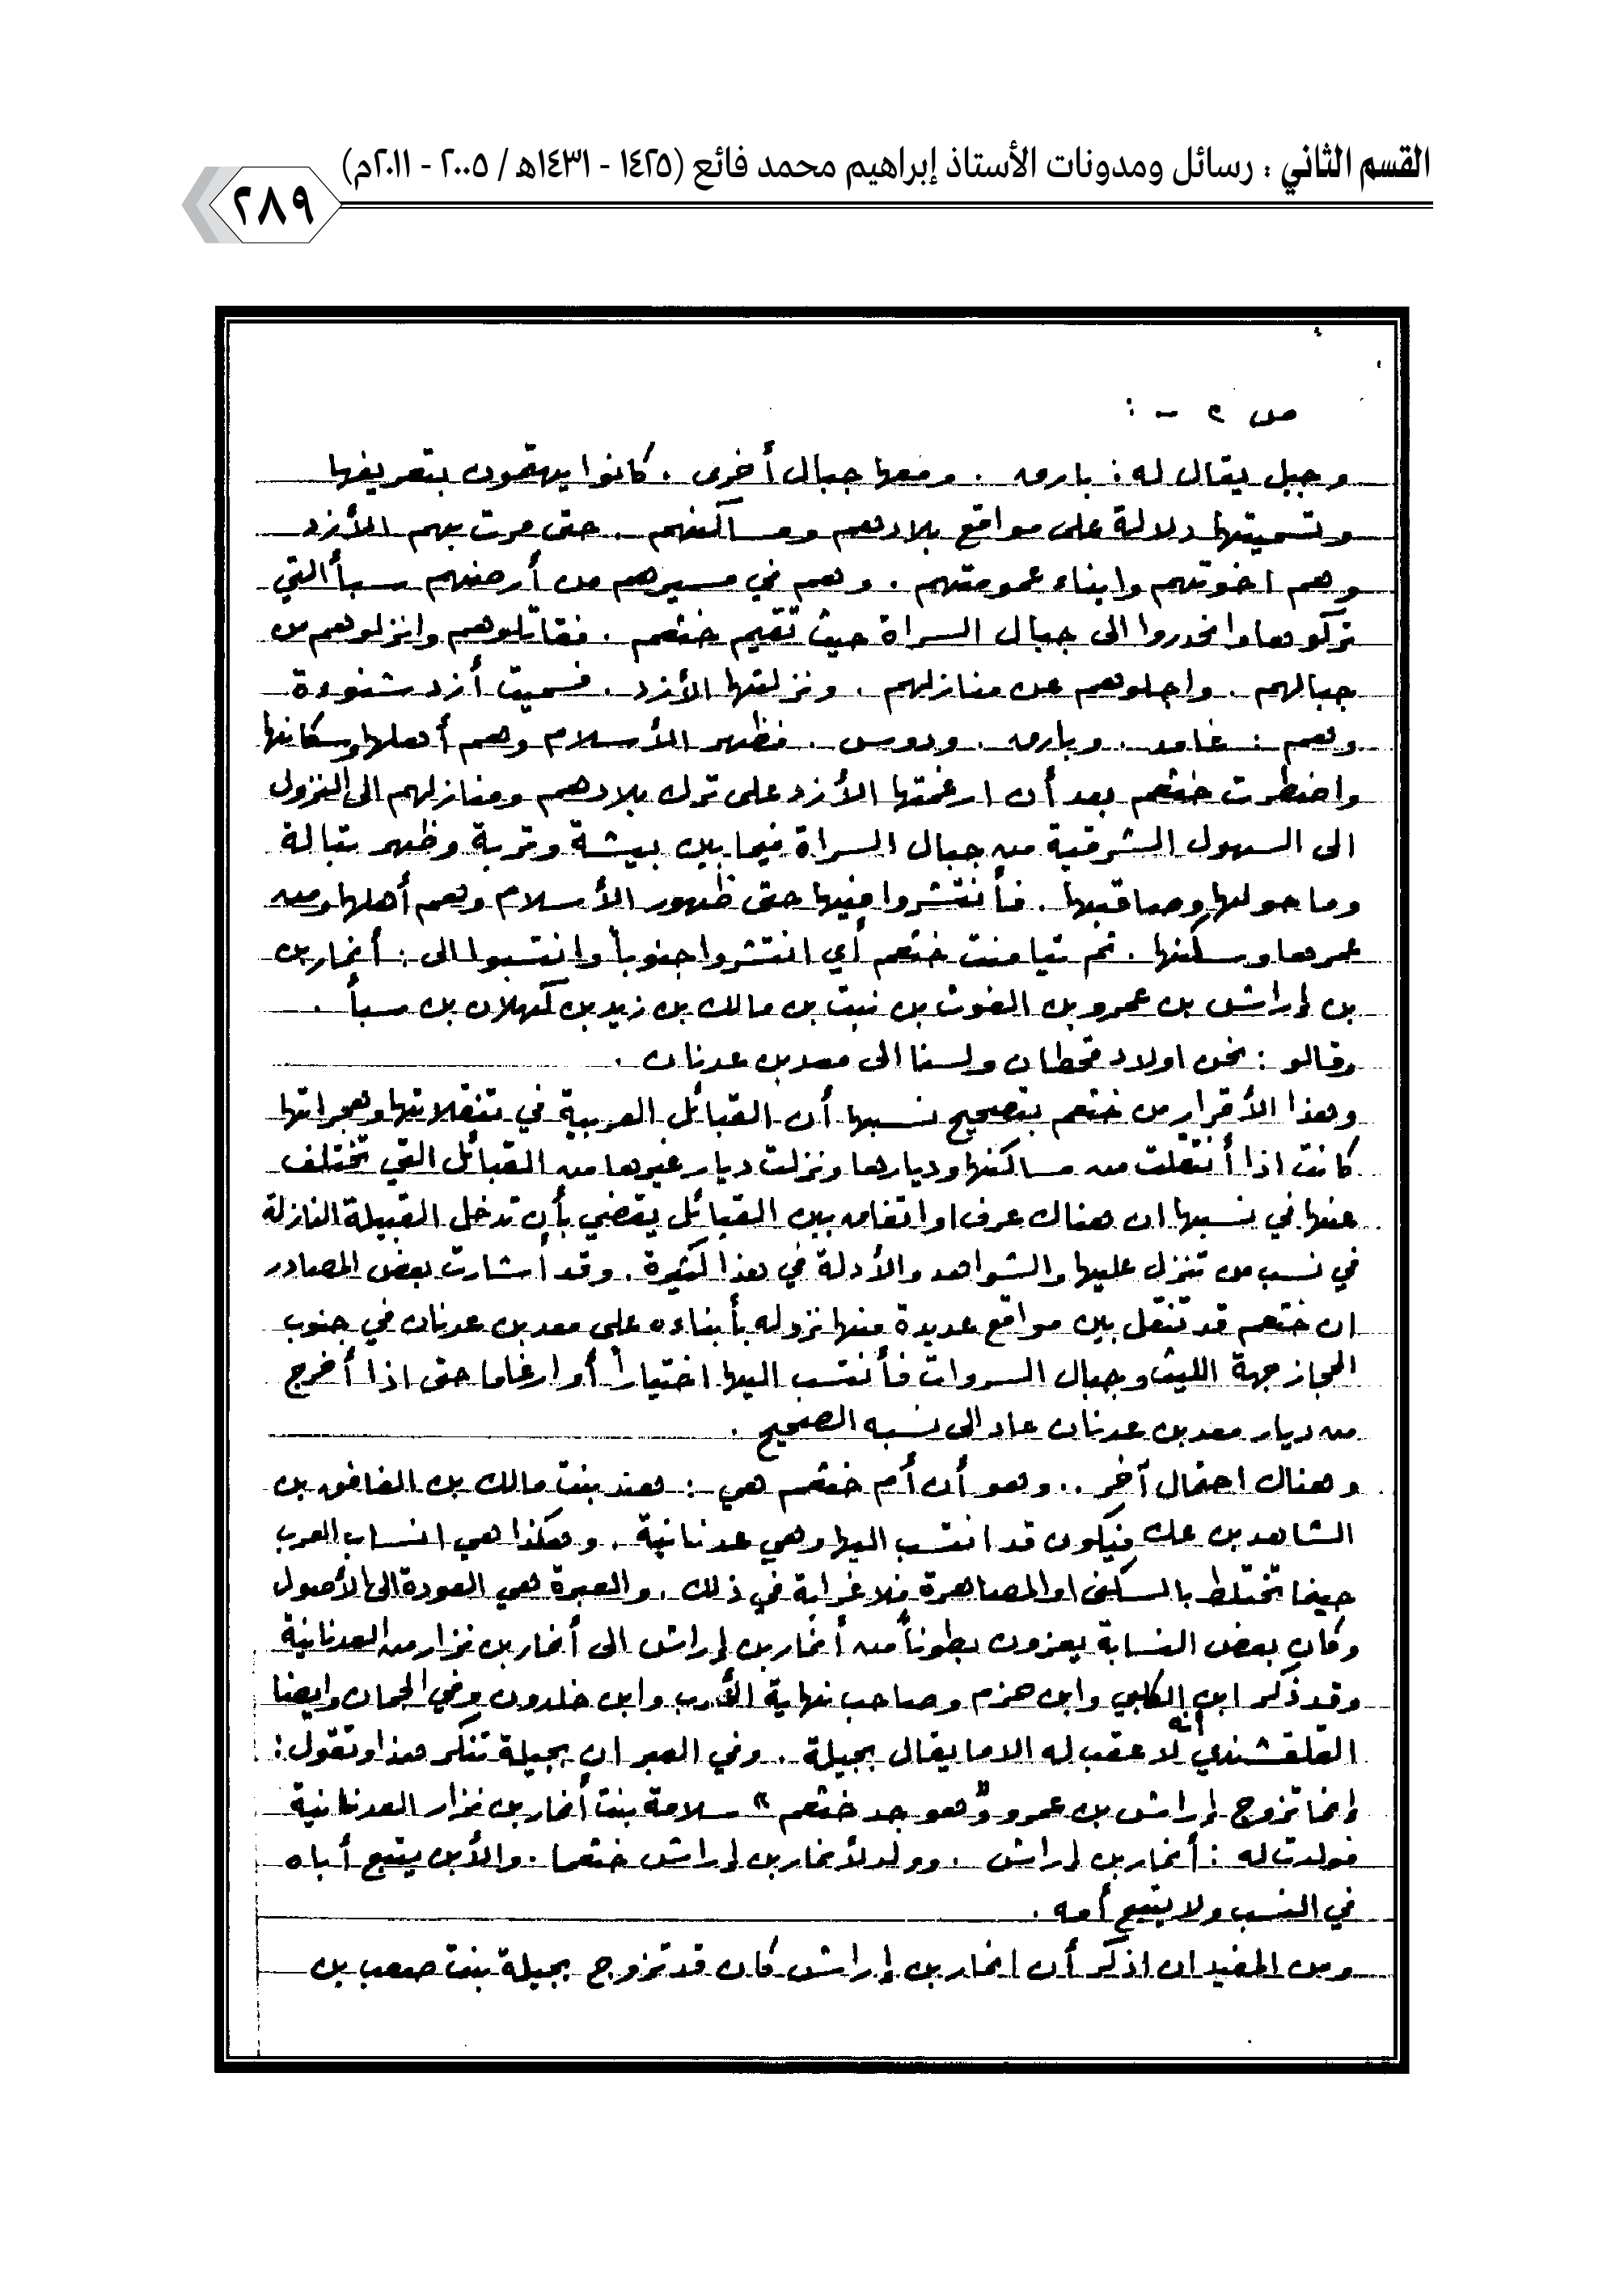 القسم الثاني : رسائل ومدونات الأستاذ إبراهيم محمد فائع (١٤٢٥ - ١٤٣١هـ / ٢٠٠٥ - ٢٠١١م)
٢٨٩
ص ٢ - :
وجبل يقال له : بارق . ومعها جبال أخرى . كانوا يهتمون بتعريفها
وتسميتها دلالة على مواقع بلادهم ومساكنهم . حتى مرت بهم الأزد
وهم اخوتهم وابناء عمومتهم . وهم في مسيرهم من أرضهم سبأ التي
تركوها وانحدروا الى جبال السراة حيث تقيم خثعم . فقاتلوهم وانزلوهم من
جبالهم . واجلوهم عن منازلهم . ونزلتها الأزد . فسميت أزد شنوءة
وهم : غامد . وبارق . ودوس . فظهر الأسلام وهم أهلها وسكانها
واضطرت خثعم بعد أن ارغمتها الأزد على ترك بلادهم ومنازلهم الى النزول
الى السهول الشرقية من جبال السراة فيما بين بيشة وتربة وظهر تبالة
وما حولها وصاقبها . فأنتشروا فيها حتى ظهور الأسلام وهم أهلها ومن
عمرها وسكنها . ثم تيامنت خثعم أي انتشروا جنوباً وانتسبوا الى : أنمار بن
بن إراش بن عمرو بن الغوث بن نبت بن مالك بن زيد بن كهلان بن سبأ .
وقالو : نحن اولاد قحطان ولسنا الى معد بن عدنان .
وهذا الأقرار من خثعم بتصحيح نسبها أن القبائل العربية في تنقلاتها وهجراتها
كانت اذا أنتقلت من مساكنها وديارها ونزلت ديار غيرها من القبائل التي تختلف
عنها في نسبها ان هناك عرف او اتفاق بين القبائل يقضي بأن تدخل القبيلة النازلة
في نسب من تنزل عليها والشواهد والأدلة في هذا كثيرة . وقد أشارت بعض المصادر
ان خثعم قد تنقل بين مواقع عديدة منها نزوله بأبناءه على معد بن عدنان في جنوب
الحجاز جهة الليث وجبال السروات فأنتسب اليها اختياراً أو ارغاما حتى اذا أخرج
من ديار معد بن عدنان عاد الى نسبه الصحيح .
وهناك احتمال آخر .. وهو أن أم خثعم هي : هند بنت مالك بن الغافق بن
الشاهد بن عك فيكون قد انتسب اليها وهي عدنانية . وهكذا هي انساب العرب
حينما تختلط بالسكنى او المصاهرة فلا غرابة في ذلك . والعبرة هي العودة الى الأصول
وكان بعض النسابة يعزون بطوناً من أنمار بن إراش الى أنمار بن نزار من العدنانية
وقد ذكر ابن الكلبي وابن حزم وصاحب نهاية الأرب وابن خلدون وفي الجمان وايضا
القلقشندي أنه لا عقب له الا ما يقال بجيلة . وفي العبر ان بجيلة تنكر هذا وتقول :
إنما تزوج إراش بن عمرو « وهو جد خثعم » سلامة بنت أنمار بن نزار العدنانية
فولدت له : أنمار بن إراش . وولد لأنمار بن إراش خثعما . والأبن يتبع أباه
في النسب ولا يتبع أمه .
ومن المفيد ان اذكر أن انمار بن إراش كان قد تزوج بجيلة بنت صعب بن